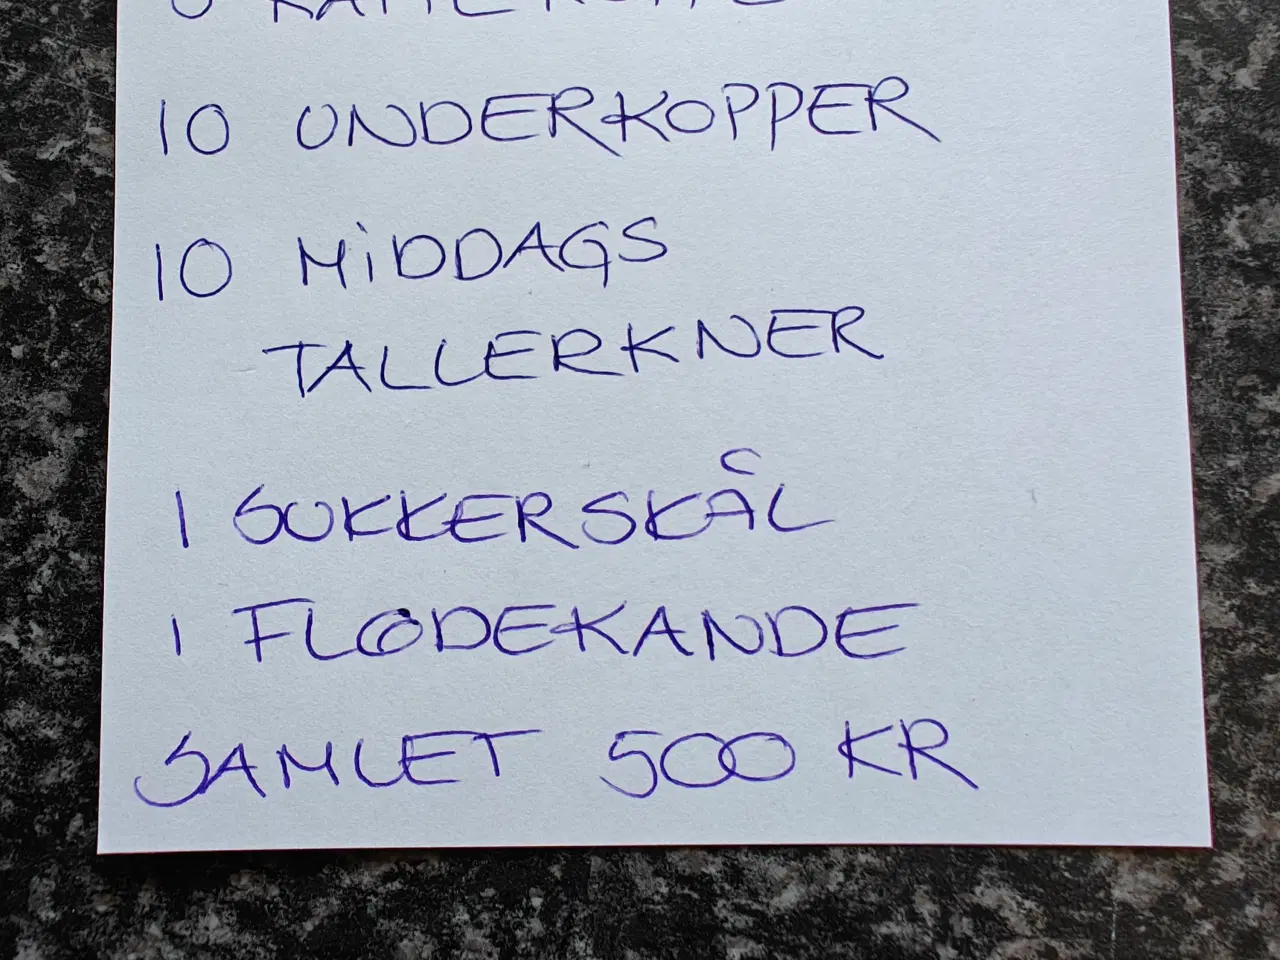 10 UNDERKOPPER
10 MiDDAGS
TALLERKNER
1 SUKKERSKÅL
1 FLØDEKANDE
SAMLET 500 KR